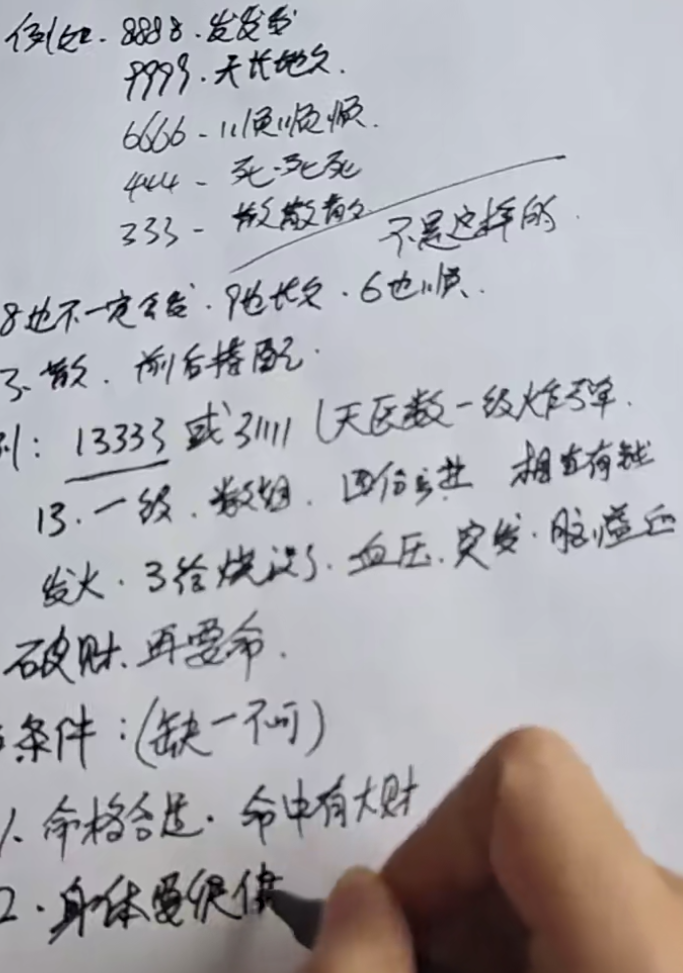 例如. 8888. 发发发
9999. 天长地久.
6666 - 顺顺顺.
444 - 死死死
333 - 散散散
不是这样的.
8也不一定会发. 9也长久. 6也顺.
3. 散. 前后搭配.
例: 13333 或 31111 (天医数一级炸弹.
13. 一级. 数组. 相当有钱
发火. 3给烧没了. 血压. 突发. 脑溢血
破财. 再要命.
条件: (缺一不可)
1. 命格合适. 命中有大财
2. 身体要很健